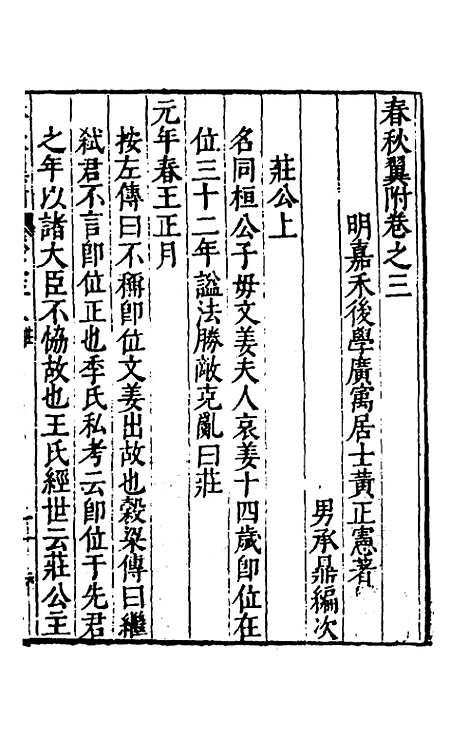 春秋翼附卷之三
明嘉禾後學廣寓居士黃正憲著
男承鼎編次
莊公上
名同桓公子毋文姜夫人哀姜十四歲即位在
位三十二年謚法勝敵克亂曰莊
元年春王正月
按左傳曰不稱即位文姜出故也穀梁傳曰繼
弒君不言即位正也季氏私考云即位于先君
之年以諸大臣不恊故也王氏經世云莊公主